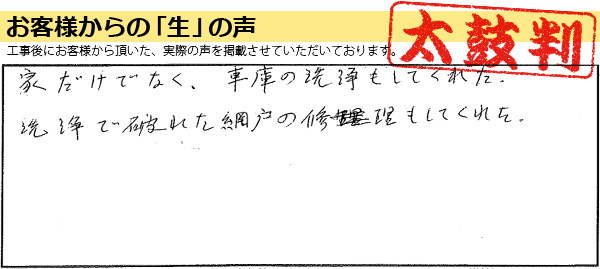 お客様からの「生」の声
太鼓判
工事後にお客様から頂いた、実際の声を掲載させていただいております。
家だけでなく、車庫の洗浄もしてくれた。
洗浄で破れた網戸の修理もしてくれた。